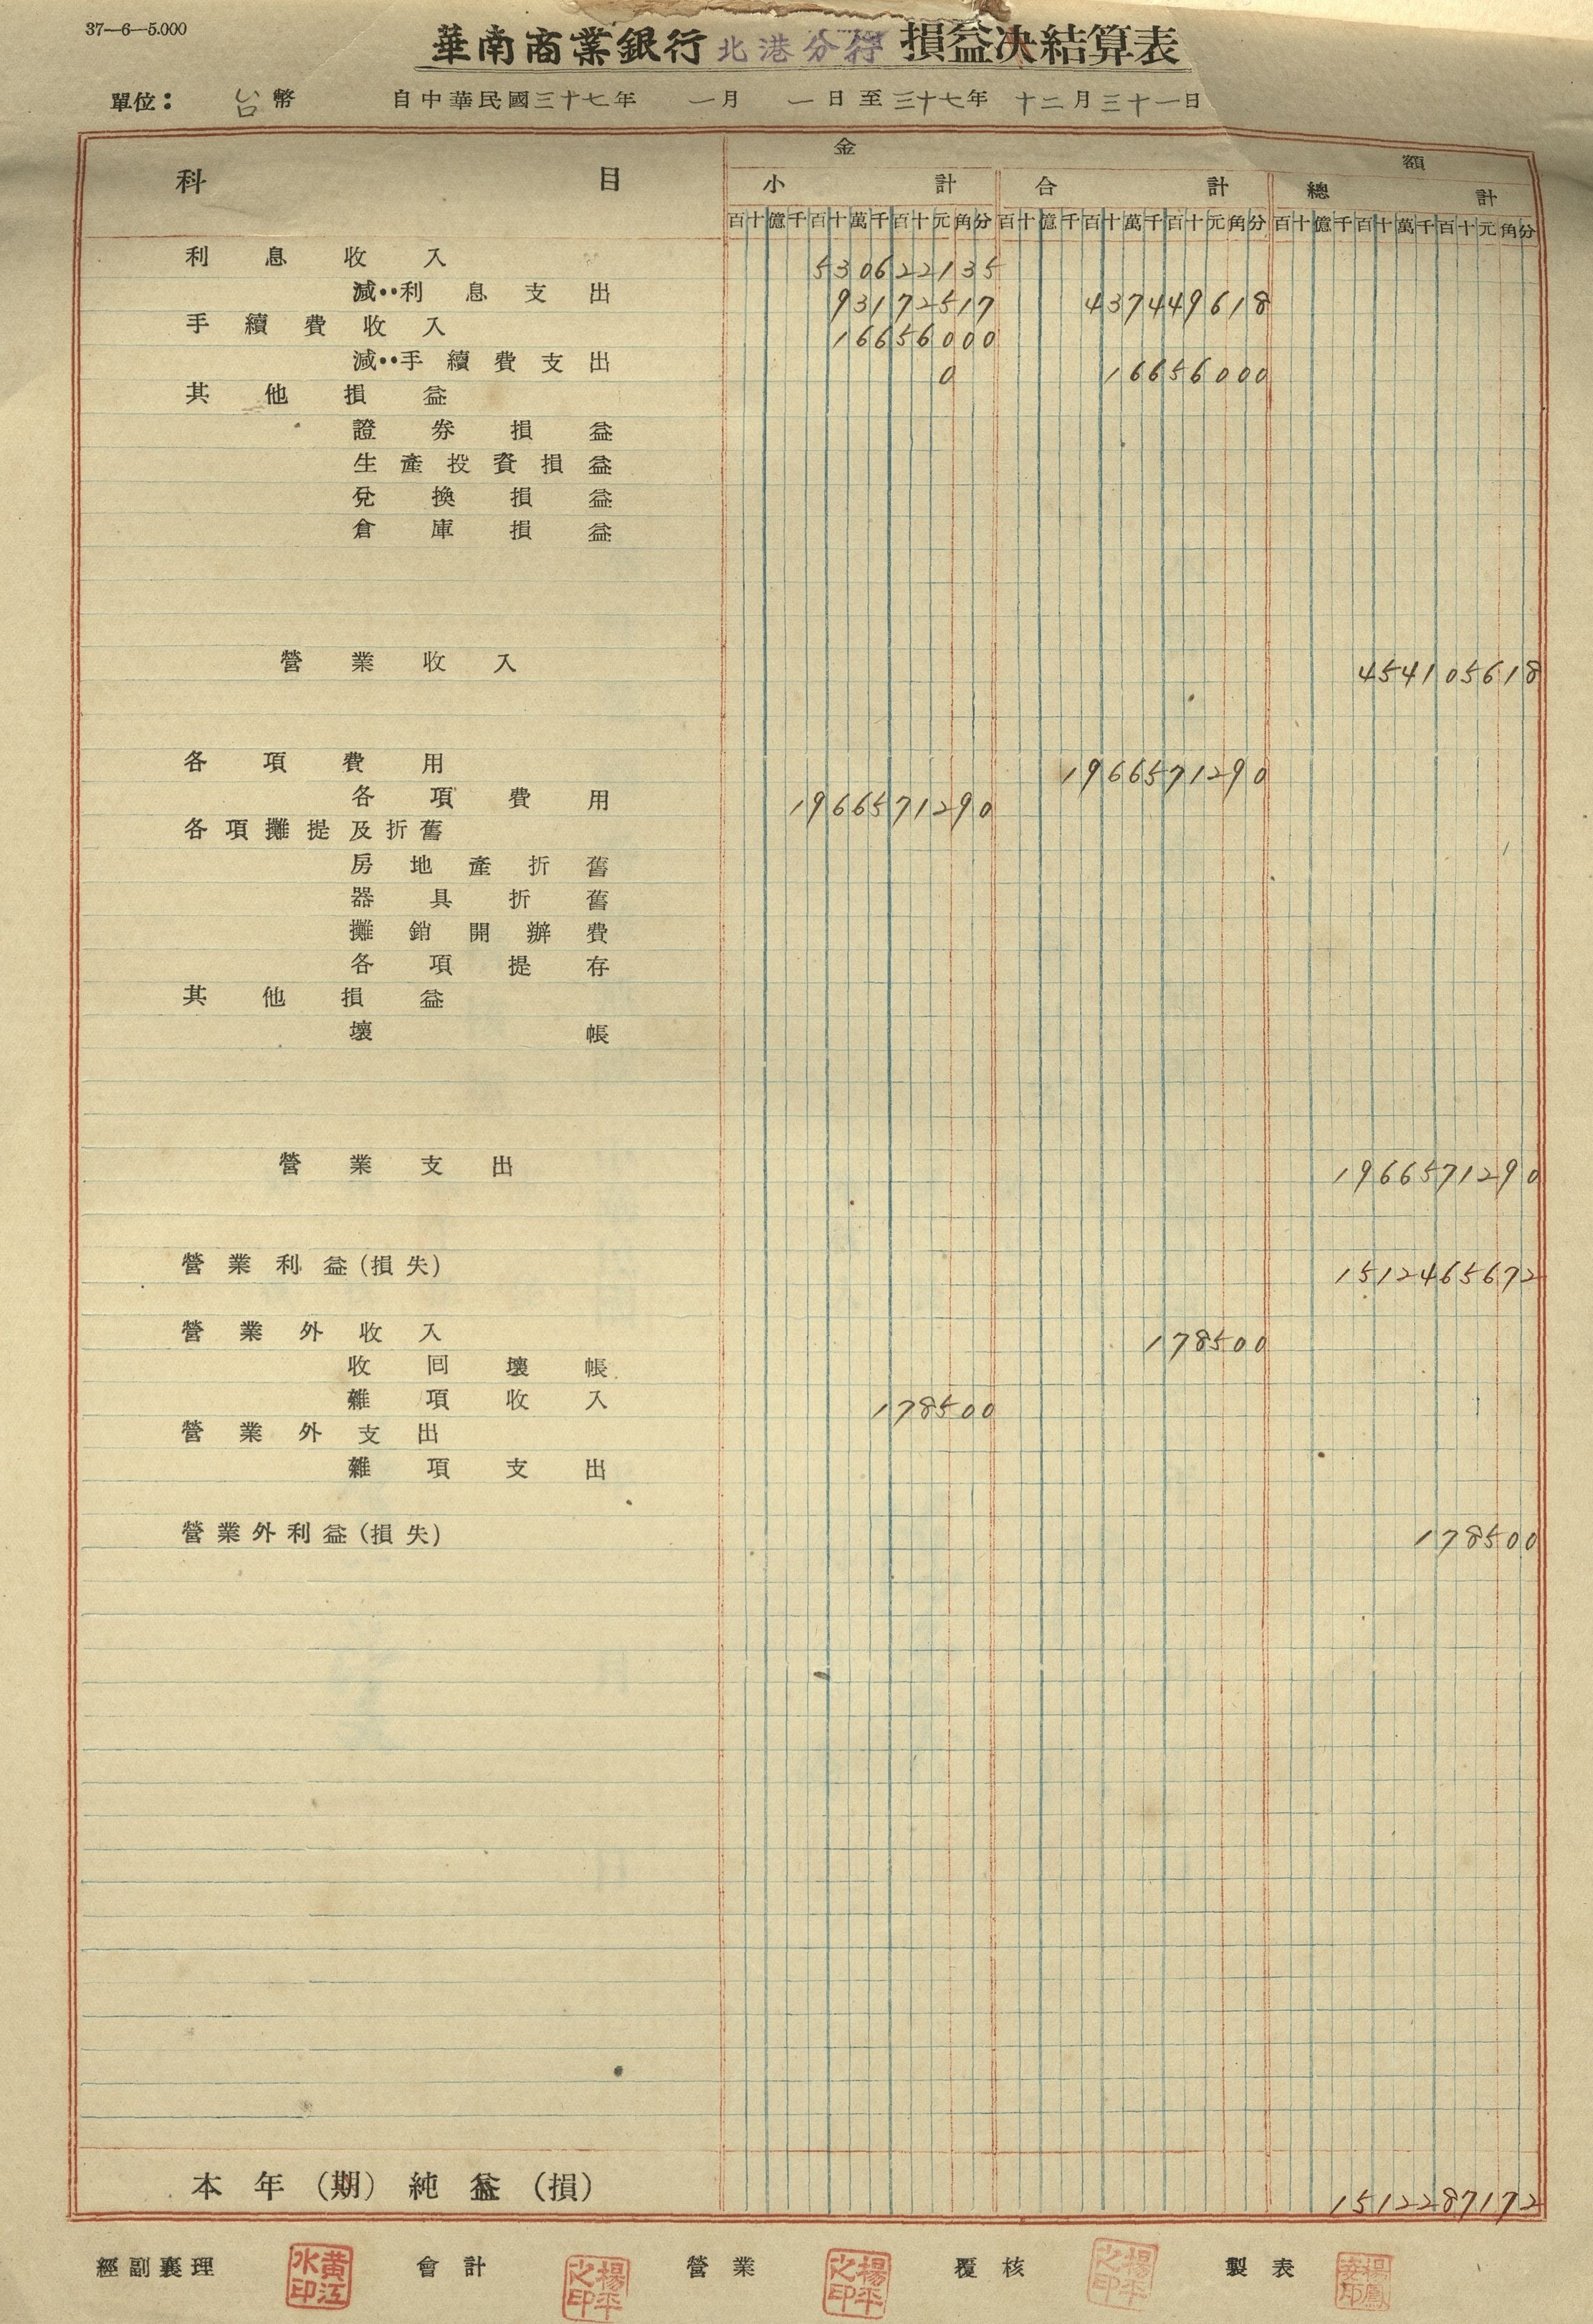 37—6—5.000
華南商業銀行北港分行損益決結算表
單位：台幣 自中華民國三十七年 一月 一日至三十七年 十二月三十一日
科目 金額
小計 合計 總計
百十億千百十萬千百十元角分 百十億千百十萬千百十元角分 百十億千百十萬千百十元角分
利息收入 530622135
減：利息支出 93172517 437449618
手續費收入 16656000
減：手續費支出 0 16656000
其他損益
證券損益
生產投資損益
兌換損益
倉庫損益
營業收入 454105618
各項費用 1966571290
各項費用 1966571290
各項攤提及折舊
房地產折舊
器具折舊
攤銷開辦費
各項提存
其他損益
壞帳
營業支出 1966571290
營業利益(損失) 1512465672
營業外收入 178500
收回壞帳
雜項收入 178500
營業外支出
雜項支出
營業外利益(損失) 178500
本年(期)純益(損) 1512287172
經副襄理 黃江水印 會計 楊平之印 營業 楊平之印 覆核 楊平之印 製表